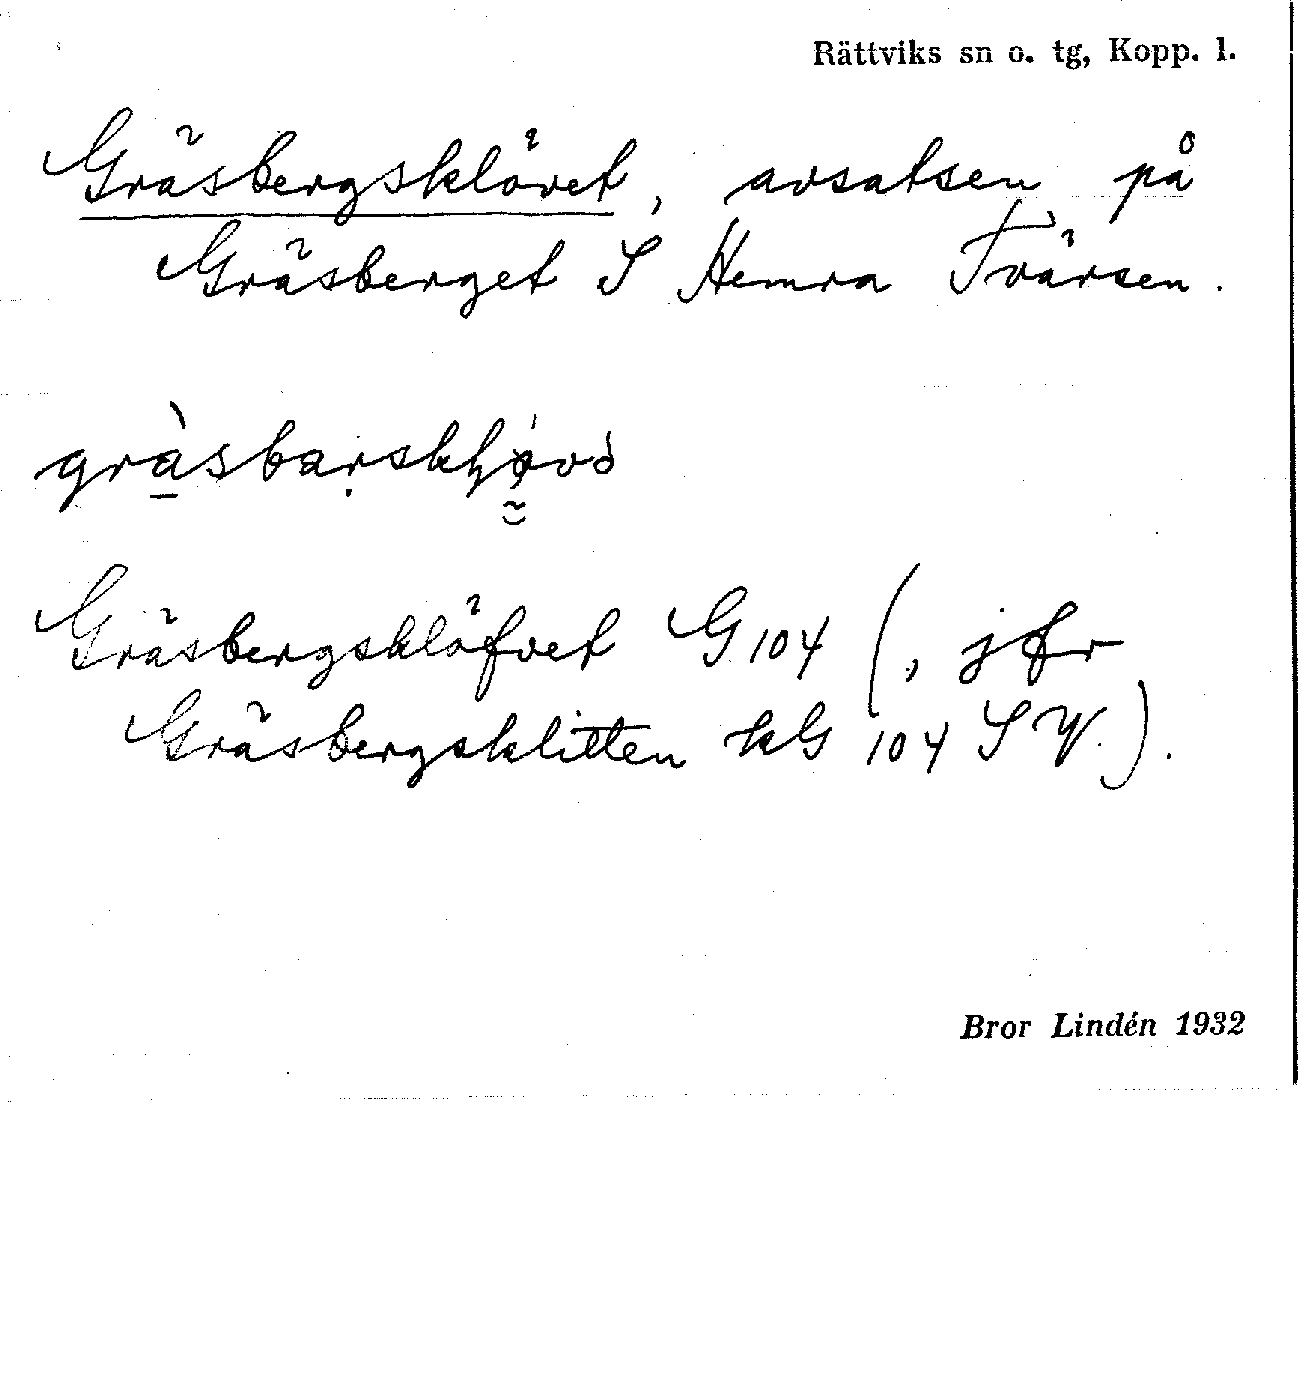 Rättviks sn o. tg, Kopp. l.
Gräsbergsklövet, avsatsen på
Gräsberget S Hemra Tvärsen.
Gräsbergsklöfvet G 104 (, jfr
Gräsbergsklitten kG 104 SV.).
Bror Lindén 1932